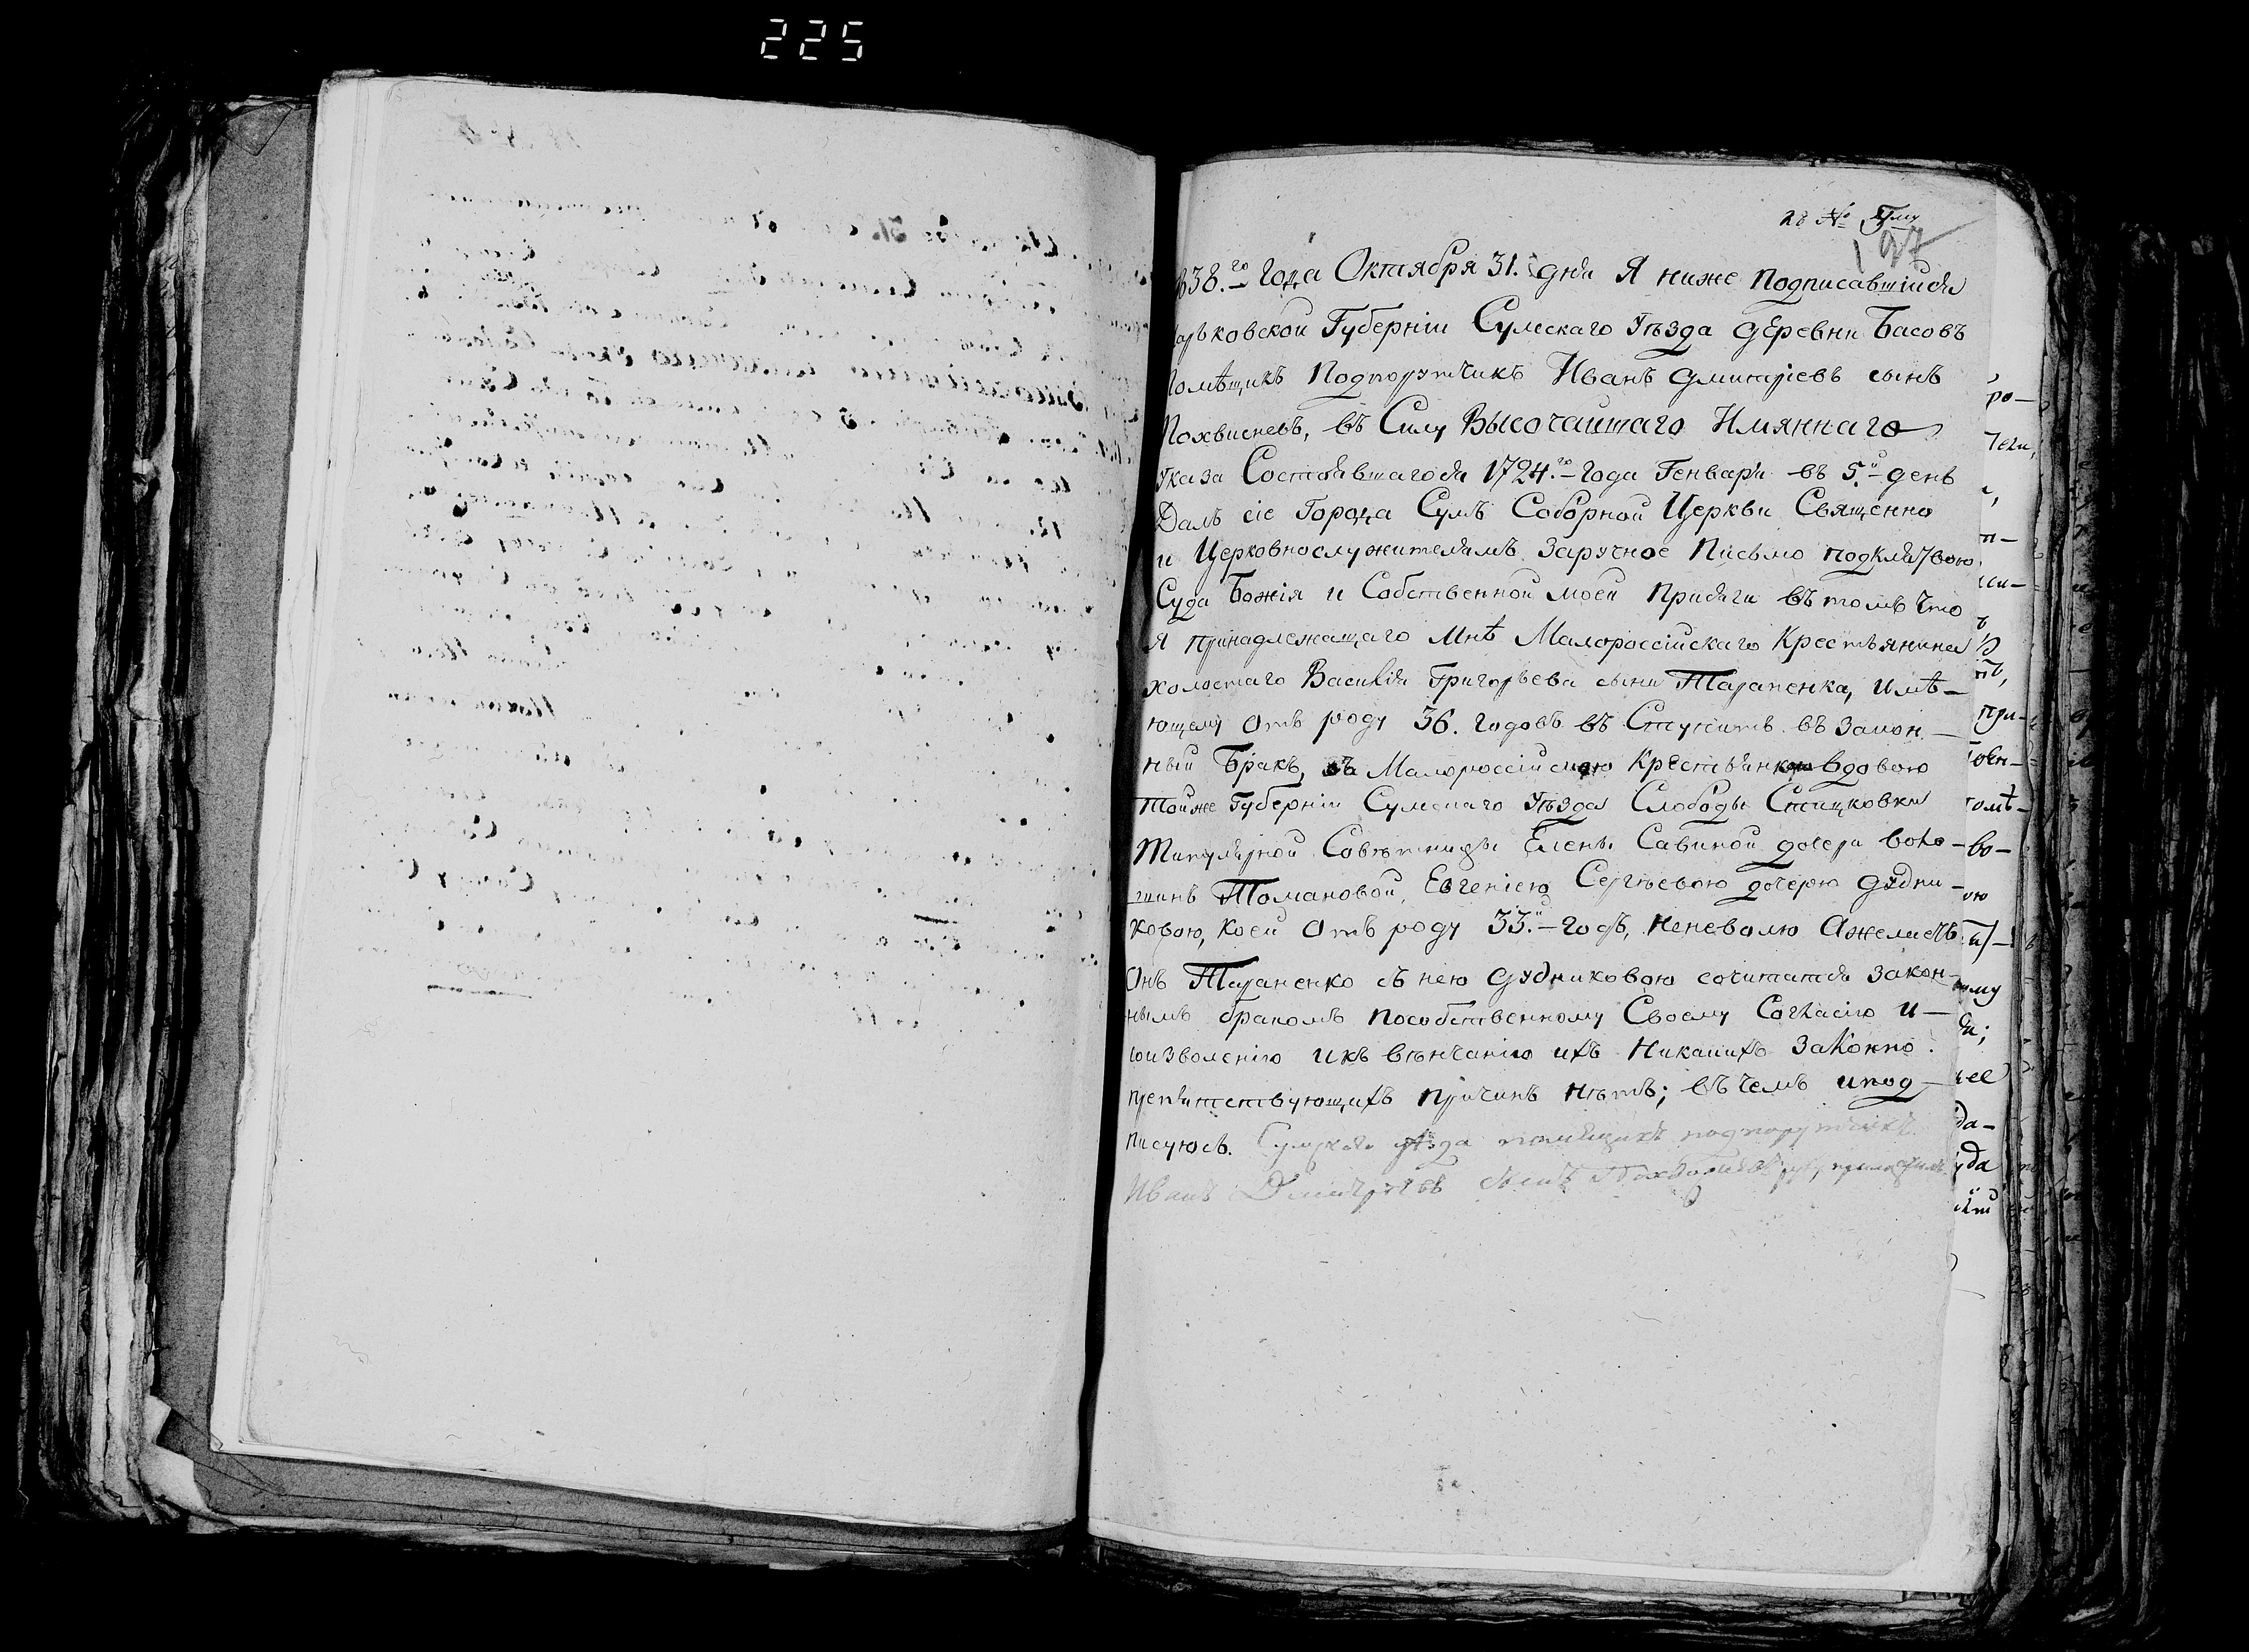 225
къ № 5му
197
838.го Года Октября 31. дня Я ниже Подписавшійся
арьковской Губерніи Сумскаго Уѣзда деревни Басовъ
Помѣщикъ Подпорутчикъ Иванъ Дмитріевъ сынъ
Похвисневъ, въ Силу Высочайшаго Имяннаго
Указа Состоявшагося 1724.го Года Генваря въ 5.й день
Далъ сіе Города Сумъ Соборной Церкви Священно
и Церковнослужителямъ Заручное Письмо подклятвою
Суда Божія и Собственной моей Присяги въ томъ что
Я принадлежащаго Мнѣ Малороссійскаго Крестьянина
холостаго Василія Григорьева сына Тараненка, имѣ-
ющему отъ роду 36. годовъ въ Ступить въ Закон-
ный Бракъ, съ Малороссійскою Крестьянкою вдовою
Тойже Губерніи Сумскаго Уѣзда Слободы Стецковки
Титулярной Совѣтницы Елены Савиной дочери Воло-
шинъ Томановой, Евгеніею Сергѣевою дочерю Дудни-
ковою, коей отъ роду 33.й годъ, неневолю Ажелаетъ
Онъ Тараненко съ нею Дудниковою сочитатся закон-
нымъ бракомъ пособственному Своему Согласію и-
соизволенію икъ вѣнчанію ихъ Никакихъ Законно
препятствующихъ причинъ нѣтъ; въ чемъ ипод-
писуюсь. Сумскаго уѣзда помѣщикъ подпорутчикъ
Иванъ Дмитріевъ сынъ Похвисневъ руку приложилъ